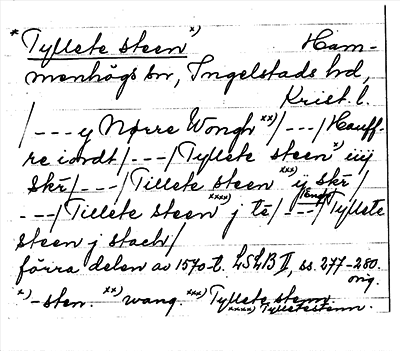 * Tyllete steen x) Ham-
menhögs sn, Ingelstads hd,
Krist. l.
/--- y Nørre Wongh xx)/---/Hauff-
re iordt/---/Tyllete steen x) iiij
skr/---/Tillete steen xxx) ij skr/
---/Tillete steen xxxx) j te/---/Tyllete
steen j stach/
förra delen av 1570-t. LSLB II, ss. 277-280.
orig.
x) -sten. xx) wang. xxx) Tyllete stenn
xxxx) Tylletestenn.